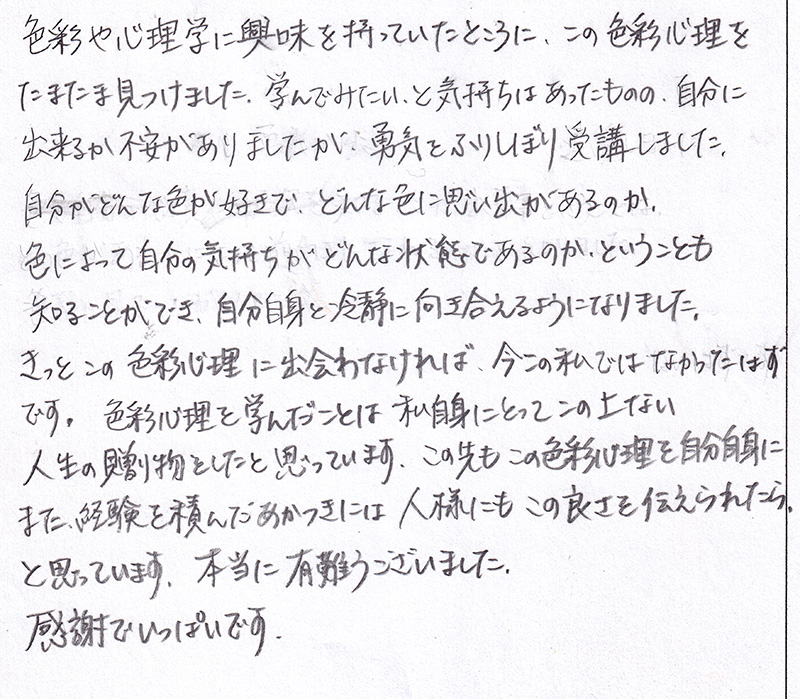 色彩や心理学に興味を持っていたところに、この色彩心理を
たまたま見つけました。学んでみたい、と気持ちはあったものの、自分に
出来るか不安がありましたが、勇気をふりしぼり受講しました。
自分がどんな色が好きで、どんな色に思い出があるのか、
色によって自分の気持ちがどんな状態であるのか、ということも
知ることができ、自分自身と冷静に向き合えるようになりました。
きっとこの色彩心理に出会わなければ、今この私ではなかったはず
です。色彩心理を学んだことは私自身にとってこの上ない
人生の贈り物をしたと思っています。この先もこの色彩心理を自分自身に
また、経験を積んだあかつきには人様にもこの良さを伝えられたら、
と思っています。本当に有難うございました。
感謝でいっぱいです。